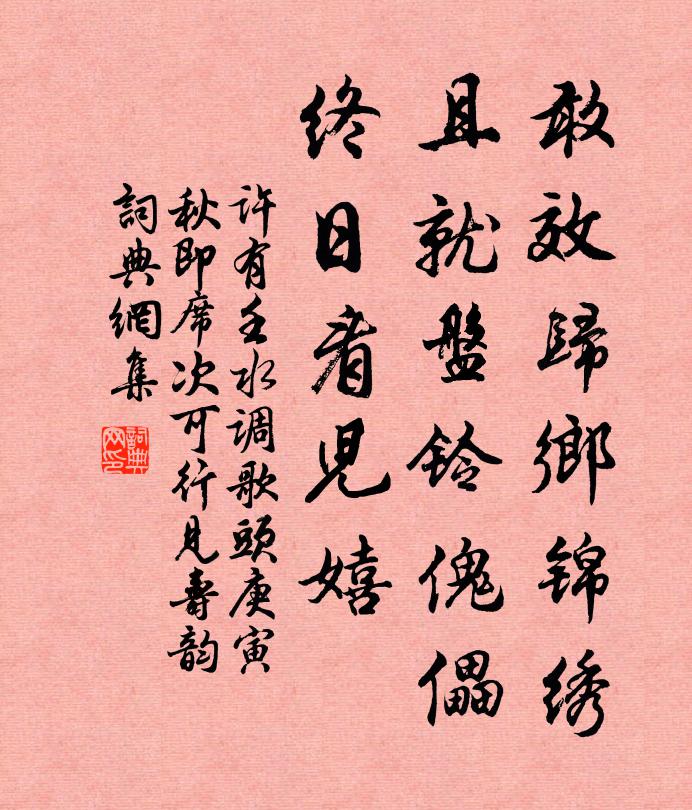 敢效歸鄉锦绣
且就盤鈴傀儡
终日看児嬉
许有壬水调歌頭庚寅
秋即席次可行見壽韵
詞典網集
詞典
网印